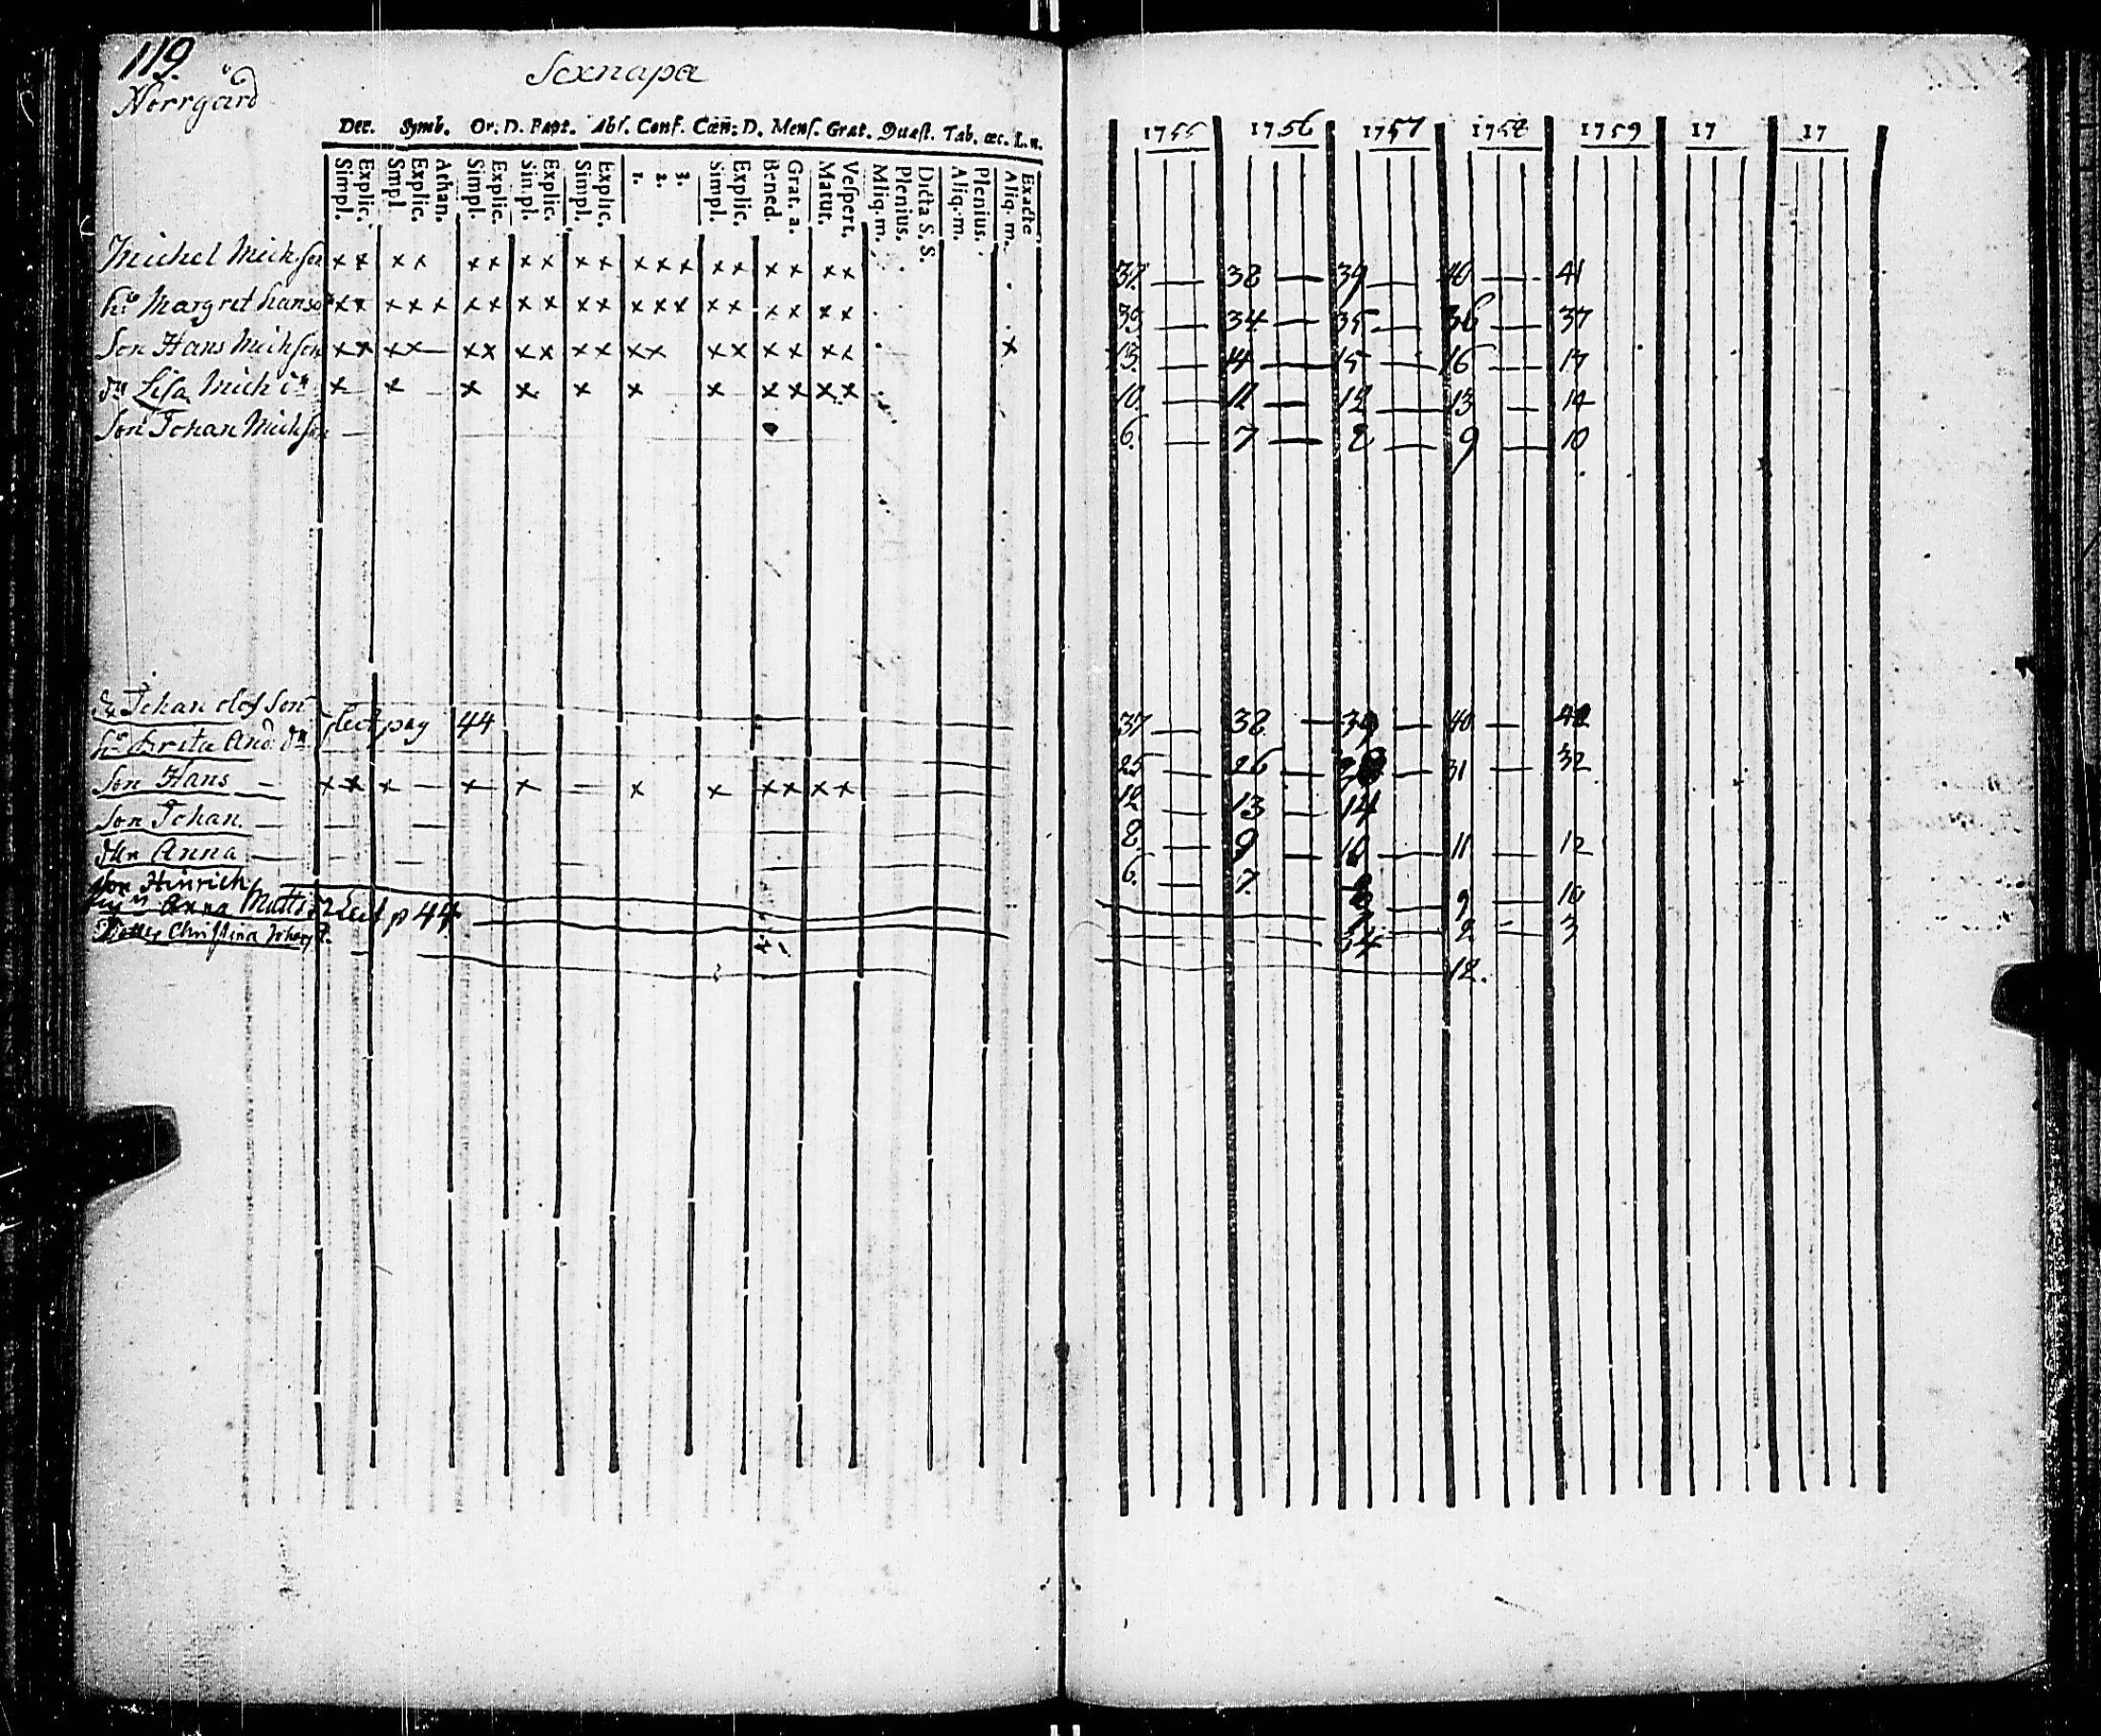 119.
Norrgård
Sexnapa
Dec. Symb. Or. D. Bapt. Abs. Conf. Cœn. D. Mens. Grat. Quæst. Tab. œc. L. n.
Simpl. Explic. Smpl Explic. Athan. Simpl. Explic. Simpl. Explic. Simpl. Explic. 1. 2. 3. Simpl. Explic. Bened. Grat. a. Matut. Vespert. Aliq. m. Plenius. Dicta S. S. Aliq. m. Plenius. Aliq. m. Exacte
1755 1756 1757 1758 1759 17 17
Michel Michson x x x x x x x x x x x x x x x x x x x 37. — 38 — 39 — 40 — 41
hu Margret hansd x x x x x x x x x x x x x x x x x x x x 33 — 34 — 35 — 36 — 37
Son Hans Michson x x x x — x x x x x x x x x x x x x x x 13. — 14 — 15 — 16 — 17
dn Lisa Mich x x x x x x x x x x x 10. — 11 — 12 — 13 — 14
Son Johan Michson — 6. — 7 — 8 — 9 — 10
Johan olofson 37 — 38 — 39 — 40 —
hu Brita And. dn pag 44 25 — 26 — — 31 — 32
Son Hans — x x x — x x — x x x x x x 12 — 13 — 14
Son Johan — 8. — 9 — 10 — 11 — 12
dtn Anna — 6. — 7. — 9 — 10
Son Hinrich — 2 — 3
Anna Matts p 44 34
Christina Joh 12.